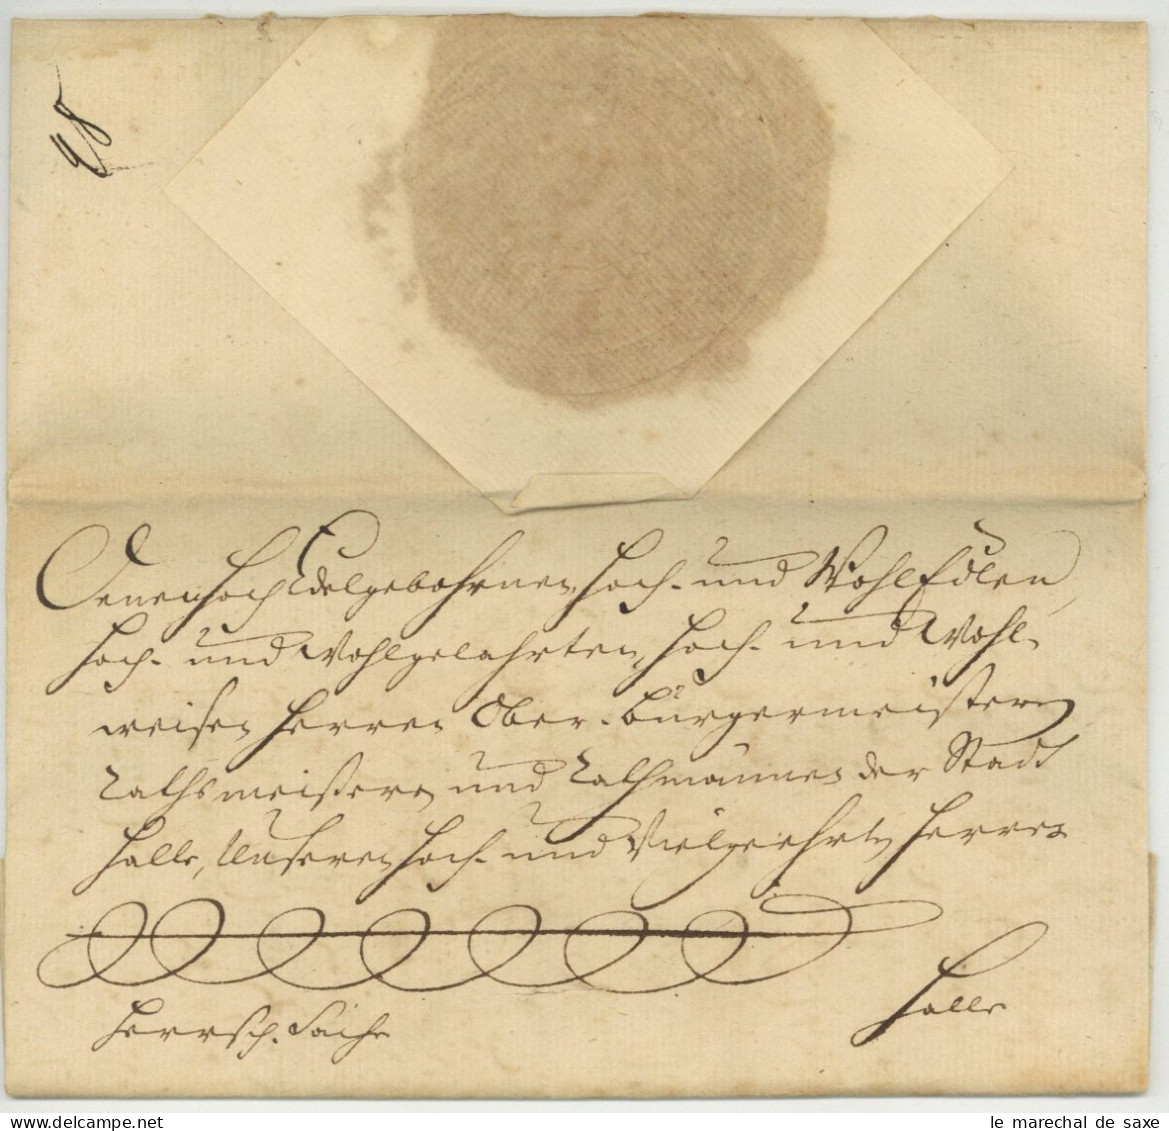 Denen HochEdelgebohrnen, Hoch- und WohlEdlen,
Hoch- und Wohlgelahrten, Hoch- und Wohl-
weisen Herren Ober-Bürgermeistern
Rathsmeistern und Rathmännern der Stadt
Halle, Unseren Hoch- und Vielgeehrten Herren
Halle
Herrsch. Sache
le marechal de saxe
www.delcampe.net